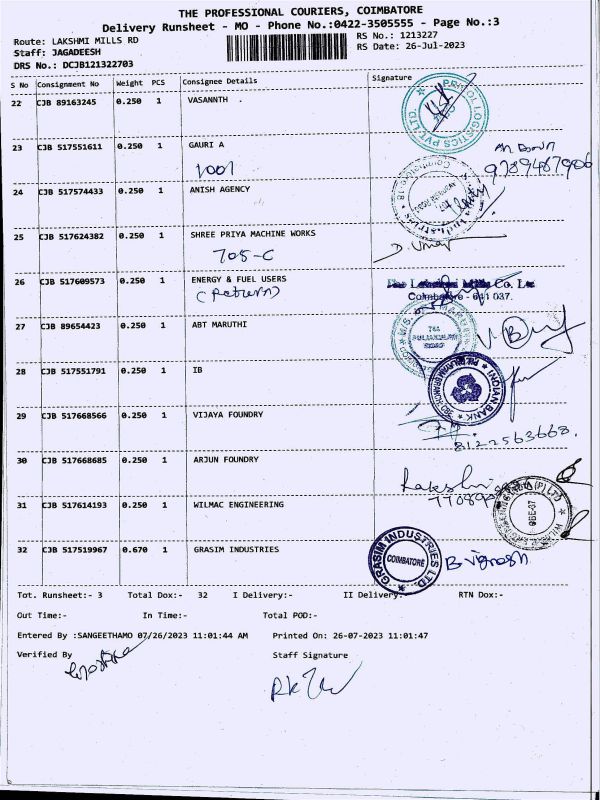 THE PROFESSIONAL COURIERS, COIMBATORE
Delivery Runsheet - MO - Phone No.:0422-3505555 - Page No.:3
Route: LAKSHMI MILLS RD
RS No.: 1213227
Staff: JAGADEESH
RS Date: 26-Jul-2023
DRS No.: DCJB121322703
S No Consignment No Weight PCS Consignee Details Signature
22 CJB 89163245 0.250 1 VASANNTH .
LOGISTICS PVT LTD
23 CJB 517551611 0.250 1 GAURI A
1001
9789487906
24 CJB 517574433 0.250 1 ANISH AGENCY
25 CJB 517624382 0.250 1 SHREE PRIYA MACHINE WORKS
705-C
D. Umar
26 CJB 517609573 0.250 1 ENERGY & FUEL USERS
(Return)
Coimbatore - 641 037.
27 CJB 89654423 0.250 1 ABT MARUTHI
28 CJB 517551791 0.250 1 IB
INDIAN BANK
29 CJB 517668566 0.250 1 VIJAYA FOUNDRY
8122563668.
30 CJB 517668685 0.250 1 ARJUN FOUNDRY
31 CJB 517614193 0.250 1 WILMAC ENGINEERING
32 CJB 517519967 0.670 1 GRASIM INDUSTRIES
GRASIM INDUSTRIES LTD.
COIMBATORE
B. Vignesh
Tot. Runsheet:- 3 Total Dox:- 32 I Delivery:- II Delivery:- RTN Dox:-
Out Time:- In Time:- Total POD:-
Entered By :SANGEETHAMO 07/26/2023 11:01:44 AM Printed On: 26-07-2023 11:01:47
Verified By Staff Signature